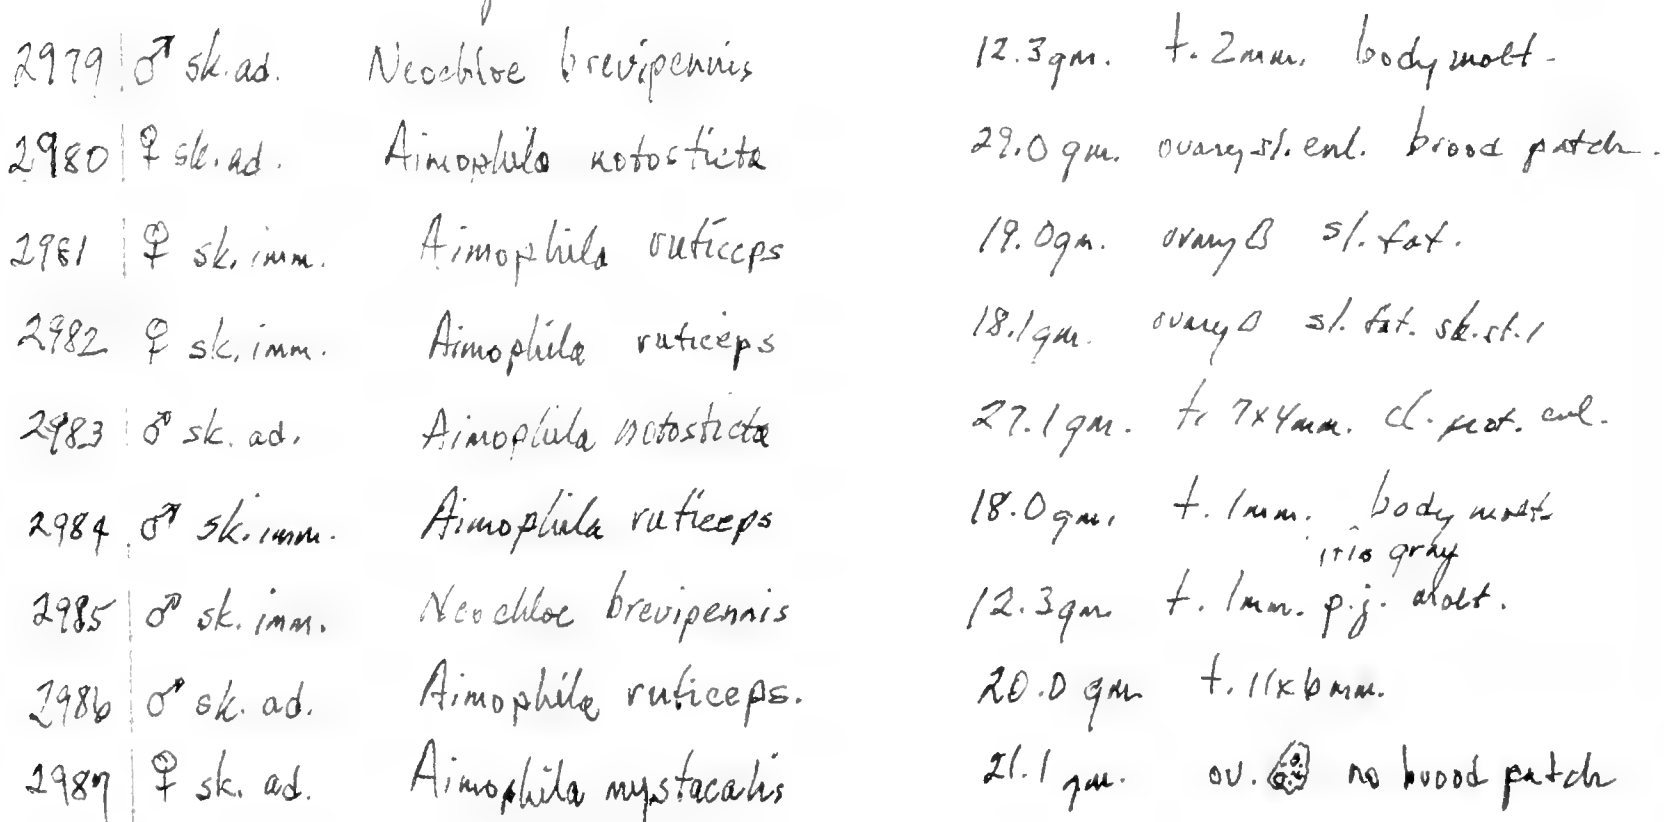 2979 ♂ sk. ad. Neochloe brevipennis 12.3 gm. t. 2mm. body molt.
2980 ♀ sk. ad. Aimophila notosticta 29.0 gm. ovary sl. enl. brood patch.
2981 ♀ sk. imm. Aimophila ruficeps 19.0 gm. ovary sl. fat.
2982 ♀ sk. imm. Aimophila ruficeps 18.1 gm. ovary sl. fat. sk. st. 1
2983 ♂ sk. ad. Aimophila notosticta 27.1 gm. t. 7x4mm. cl. prot. enl.
2984 ♂ sk. imm. Aimophila ruficeps 18.0 gm. t. 1mm. body molt
iris gray
2985 ♂ sk. imm. Neochloe brevipennis 12.3 gm. t. 1mm. p.j. molt.
2986 ♂ sk. ad. Aimophila ruficeps. 20.0 gm t. 11x6mm.
2987 ♀ sk. ad. Aimophila mystacalis 21.1 gm. ov. no brood patch